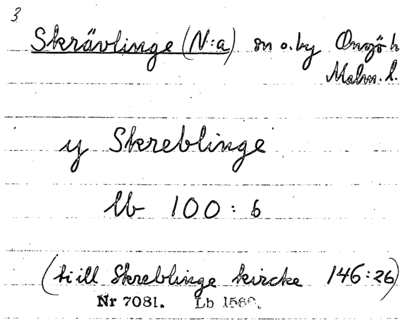 3
Skrävlinge (N:a) sn o. by Onsjö h
Malm. l.
y Skreblinge
lb 100: 6
(till Skreblinge kircke 146:26)
Nr 7081. Lb 1569.